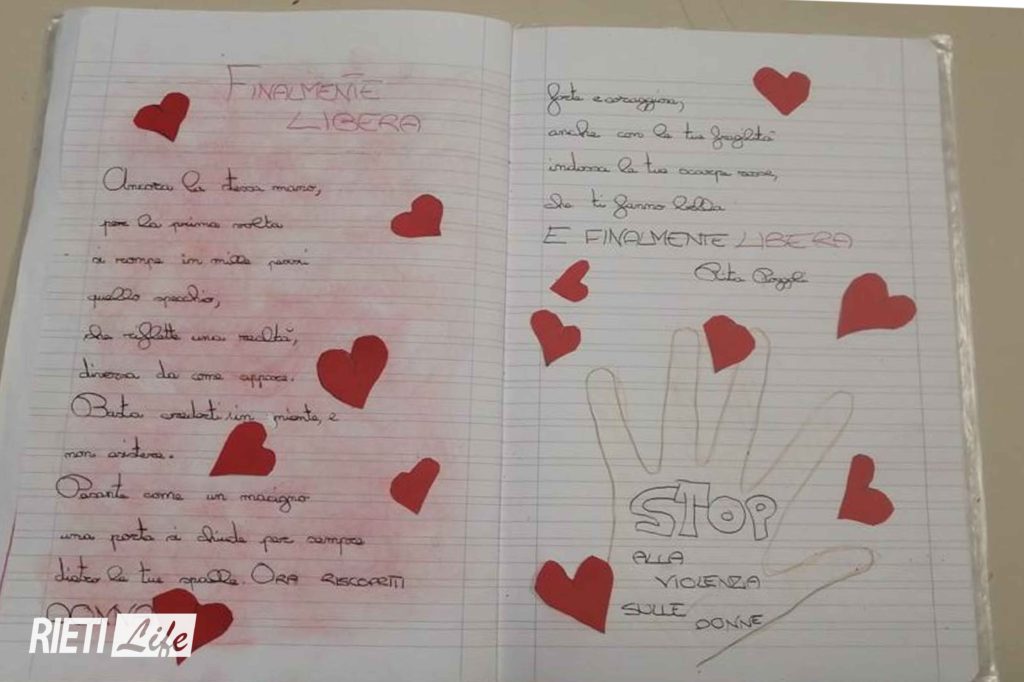 FINALMENTE
LIBERA
Ancora la stessa mano,
per la prima volta
si rompe in mille pezzi
quello specchio,
che riflette una realtà,
diversa da come appare.
Basta crederti in niente, e
non esistere.
Pesante come un macigno
una porta si chiude per sempre
dietro le tue spalle. ORA RISCOPRITI
forte e coraggiosa,
anche con le tue fragilità
indossa le tue scarpe rosse,
che ti fanno bella
E FINALMENTE LIBERA
Rita
STOP
ALLA
VIOLENZA
SULLE DONNE
RIETI Life